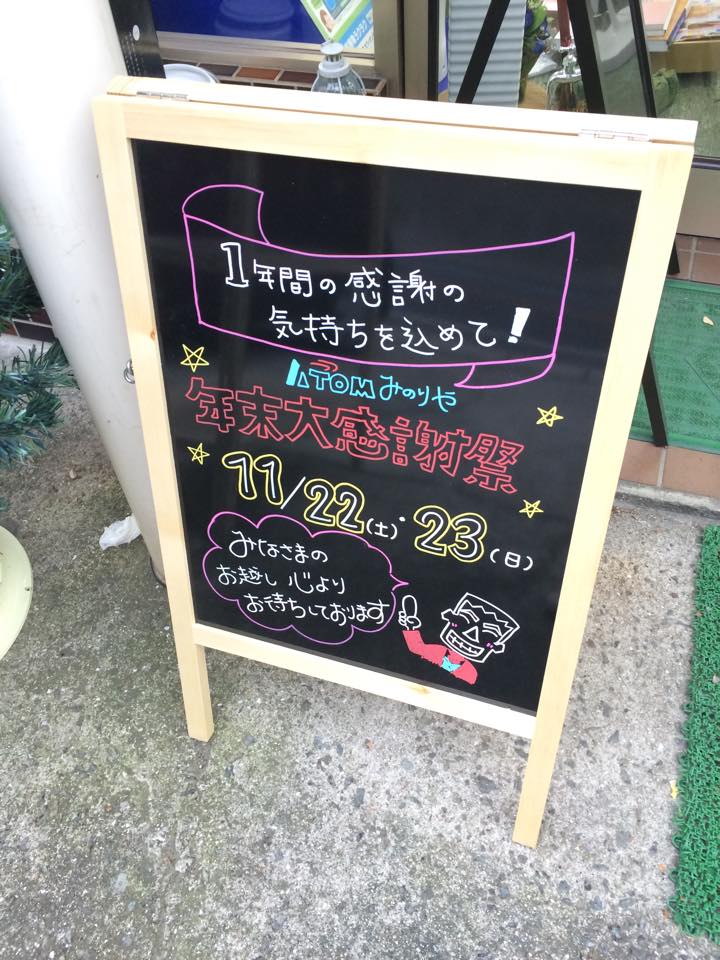 1年間の感謝の
気持ちを込めて!
ATOMみのりや
年末大感謝祭
11/22(土)・23(日)
みなさまの
お越し心より
お待ちしております